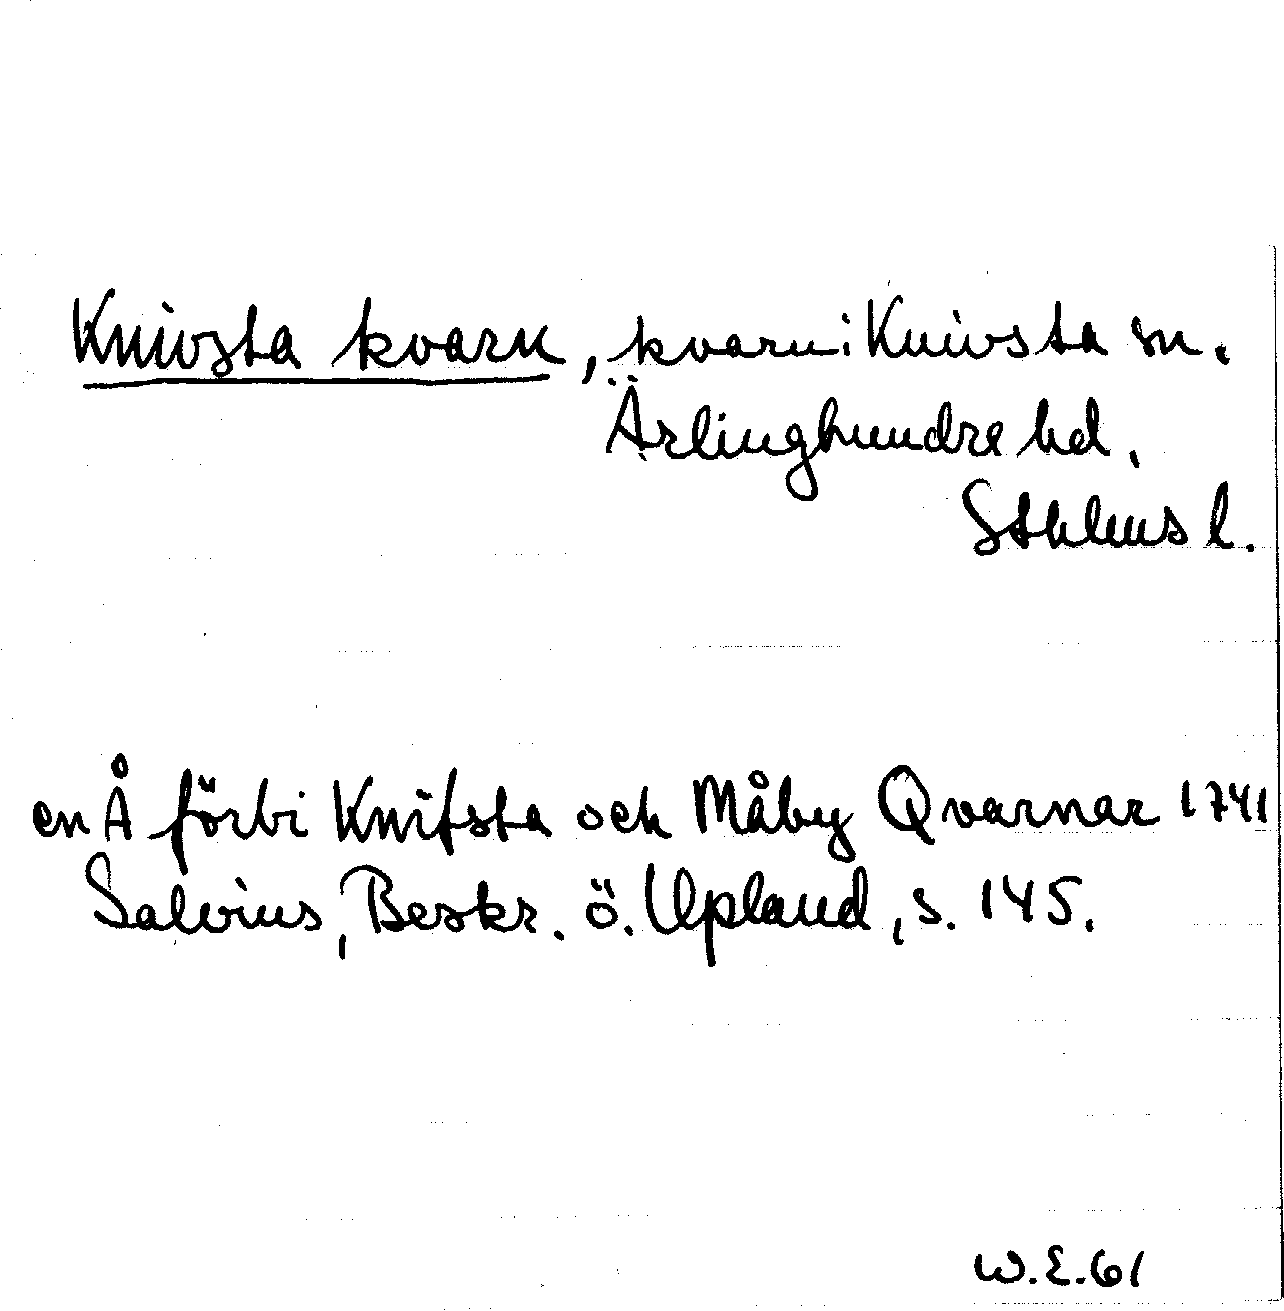 Knivsta kvarn, kvarn i Knivsta sn.
Ärlinghundre hd.
Sthlms l.
en Å förbi Knifsta och Måby Qvarnar 1741
Salvius, Beskr. ö. Upland, s. 145.
W.E.61